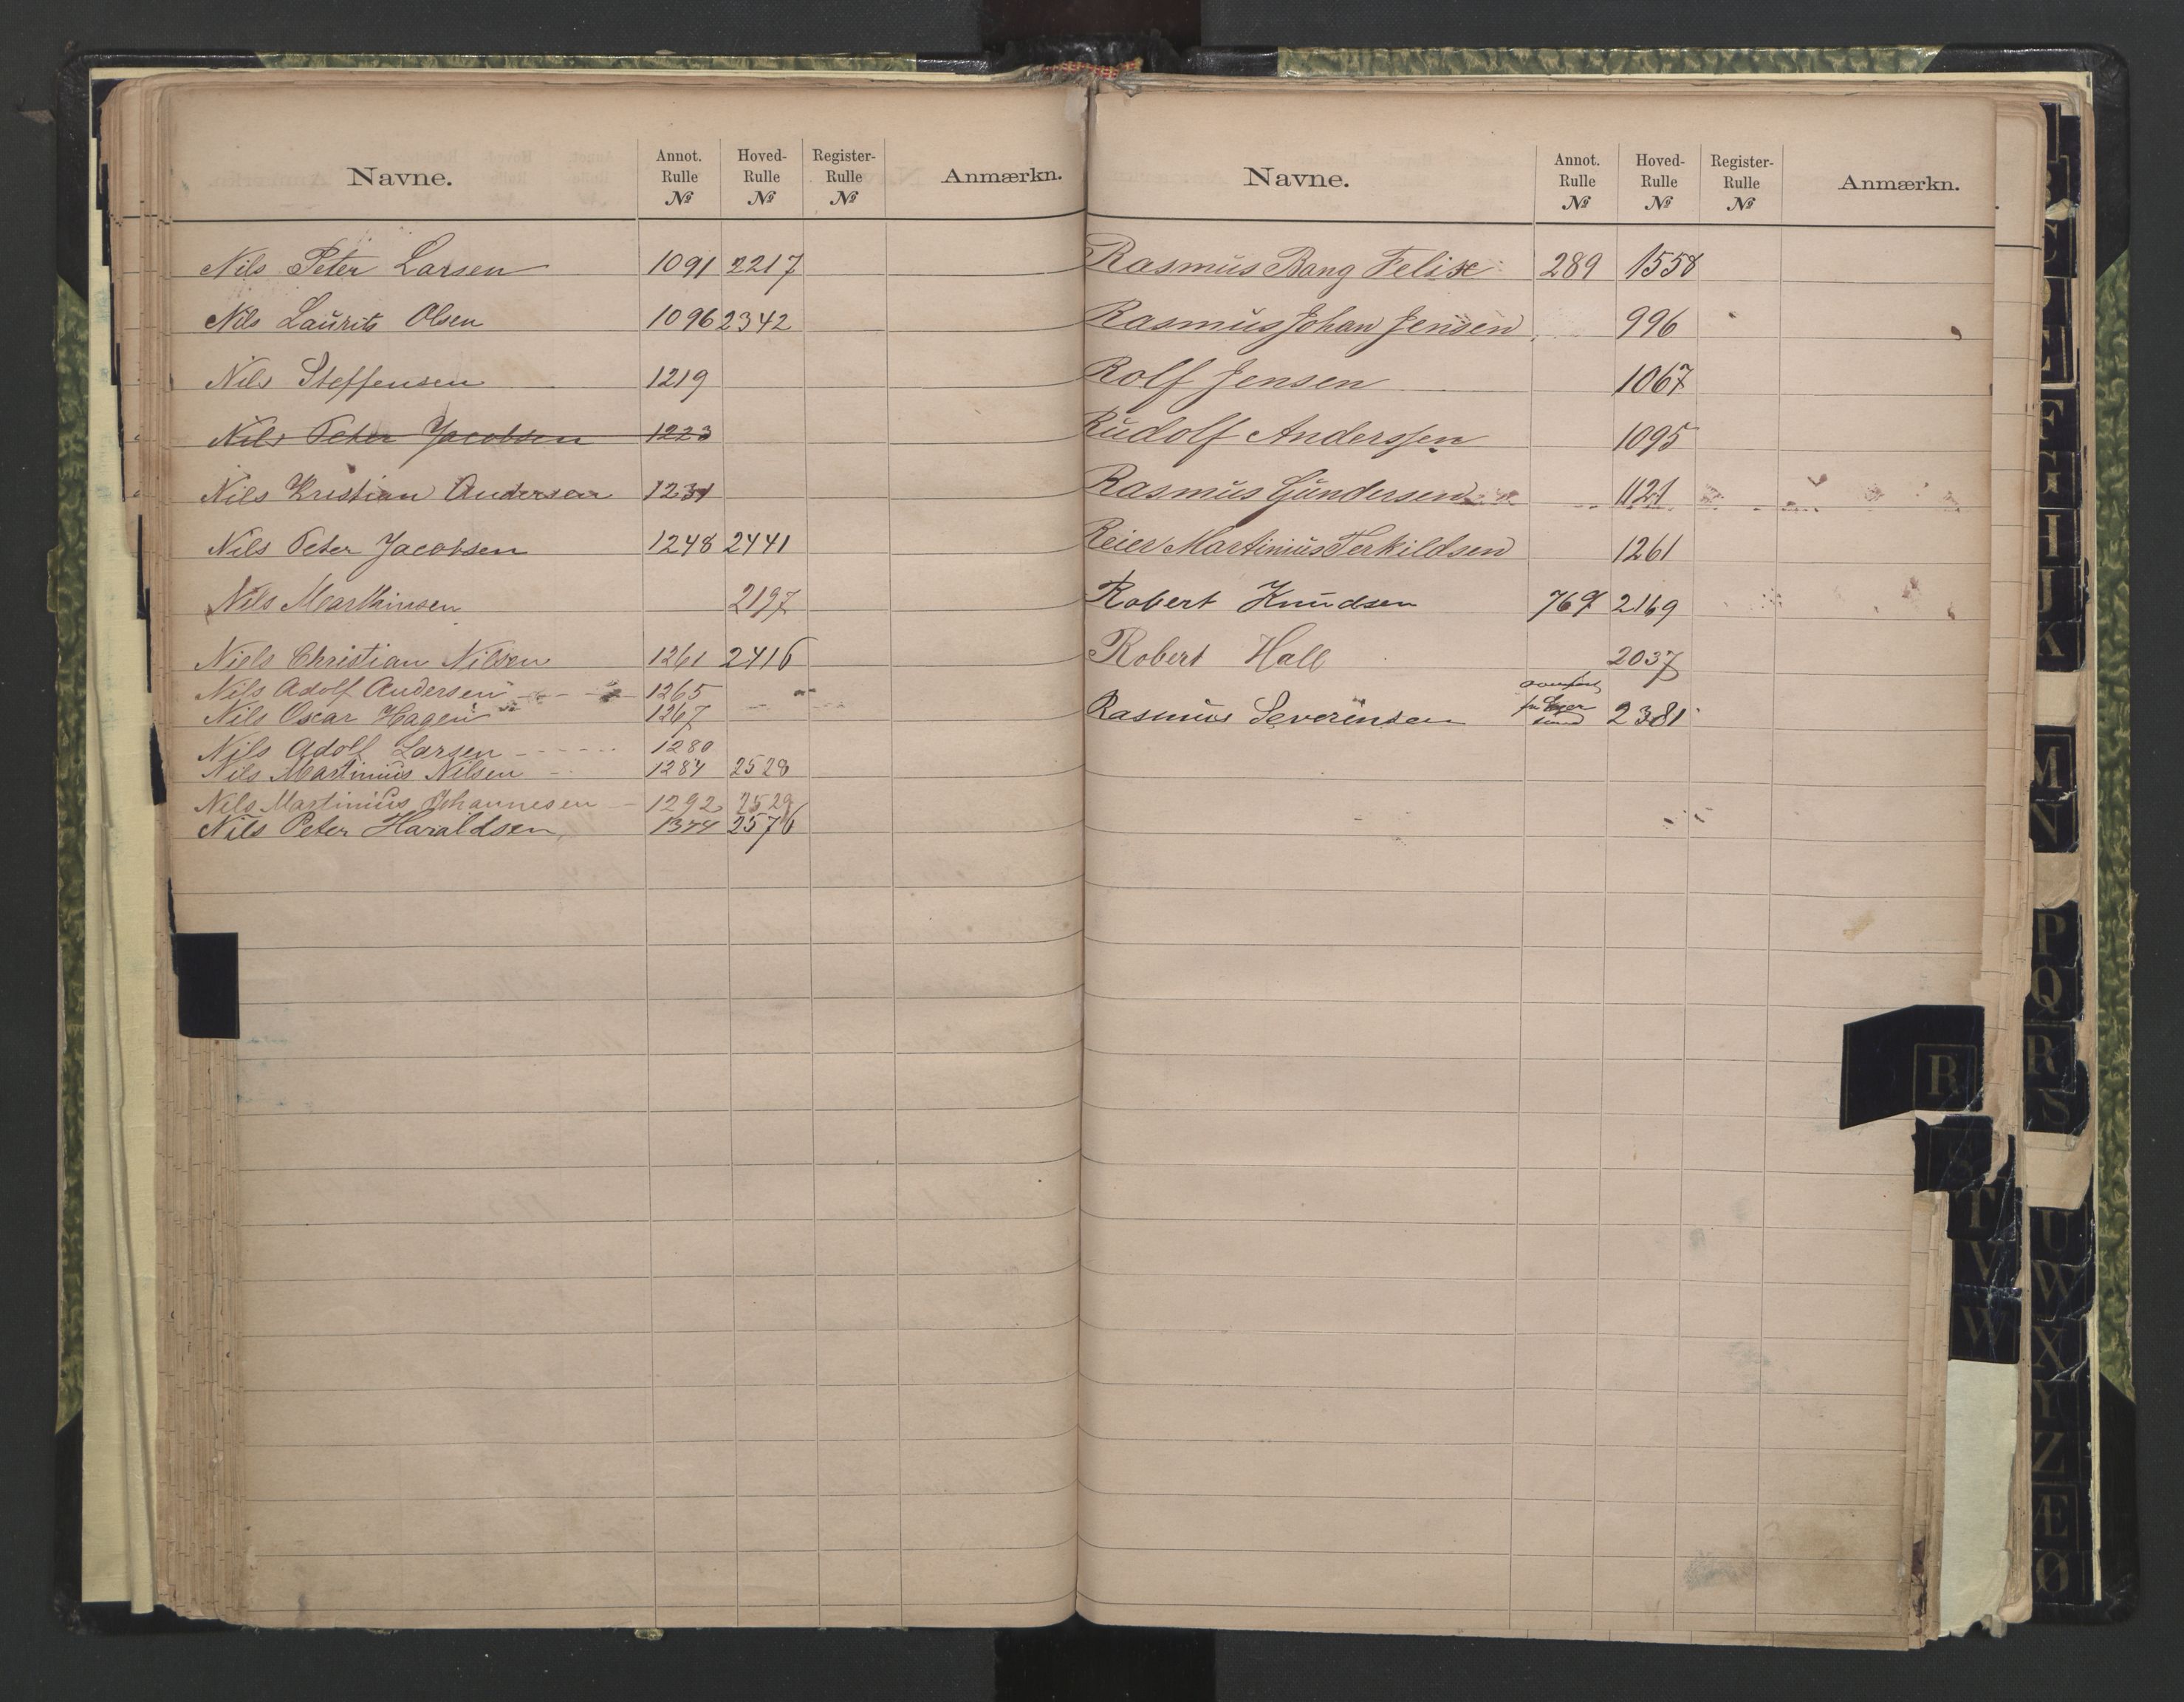 Navne. Annot. Rulle № Hoved-Rulle № Register-Rulle № Anmærkn.
Nils Peter Larsen 1091 2217
Nils Laurits Olsen 1096 2342
Nils Steffensen 1219
Nils Peter Jacobsen 1223
Nils Kristian Andersen 1231
Nils Peter Jacobsen 1248 2441
Nils Marthinsen 2197
Niels Christian Nilsen 1261 2416
Nils Adolf Andersen 1265
Nils Oscar Hagen 1267
Nils Adolf Larsen 1280
Nils Martinius Nilsen 1284 2528
Nils Martinius Johannesen 1292 2529
Nils Peter Haraldsen 1344 2576
Navne. Annot. Rulle № Hoved-Rulle № Register-Rulle № Anmærkn.
Rasmus Bang Felix 289 1558
Rasmus Johan Jensen 996
Rolf Jensen 1067
Rudolf Anderssen 1095
Rasmus Gundersen 1121
Reier Martinius Terkildsen 1261
Robert Knudsen 769 2169
Robert Hall 2037
Rasmus Severinsen 2381
C
E
F
G
H
J
K
M
N
P
Q
R
R
S
T
U
V
W
W
X
Y
Z
Æ
Ø